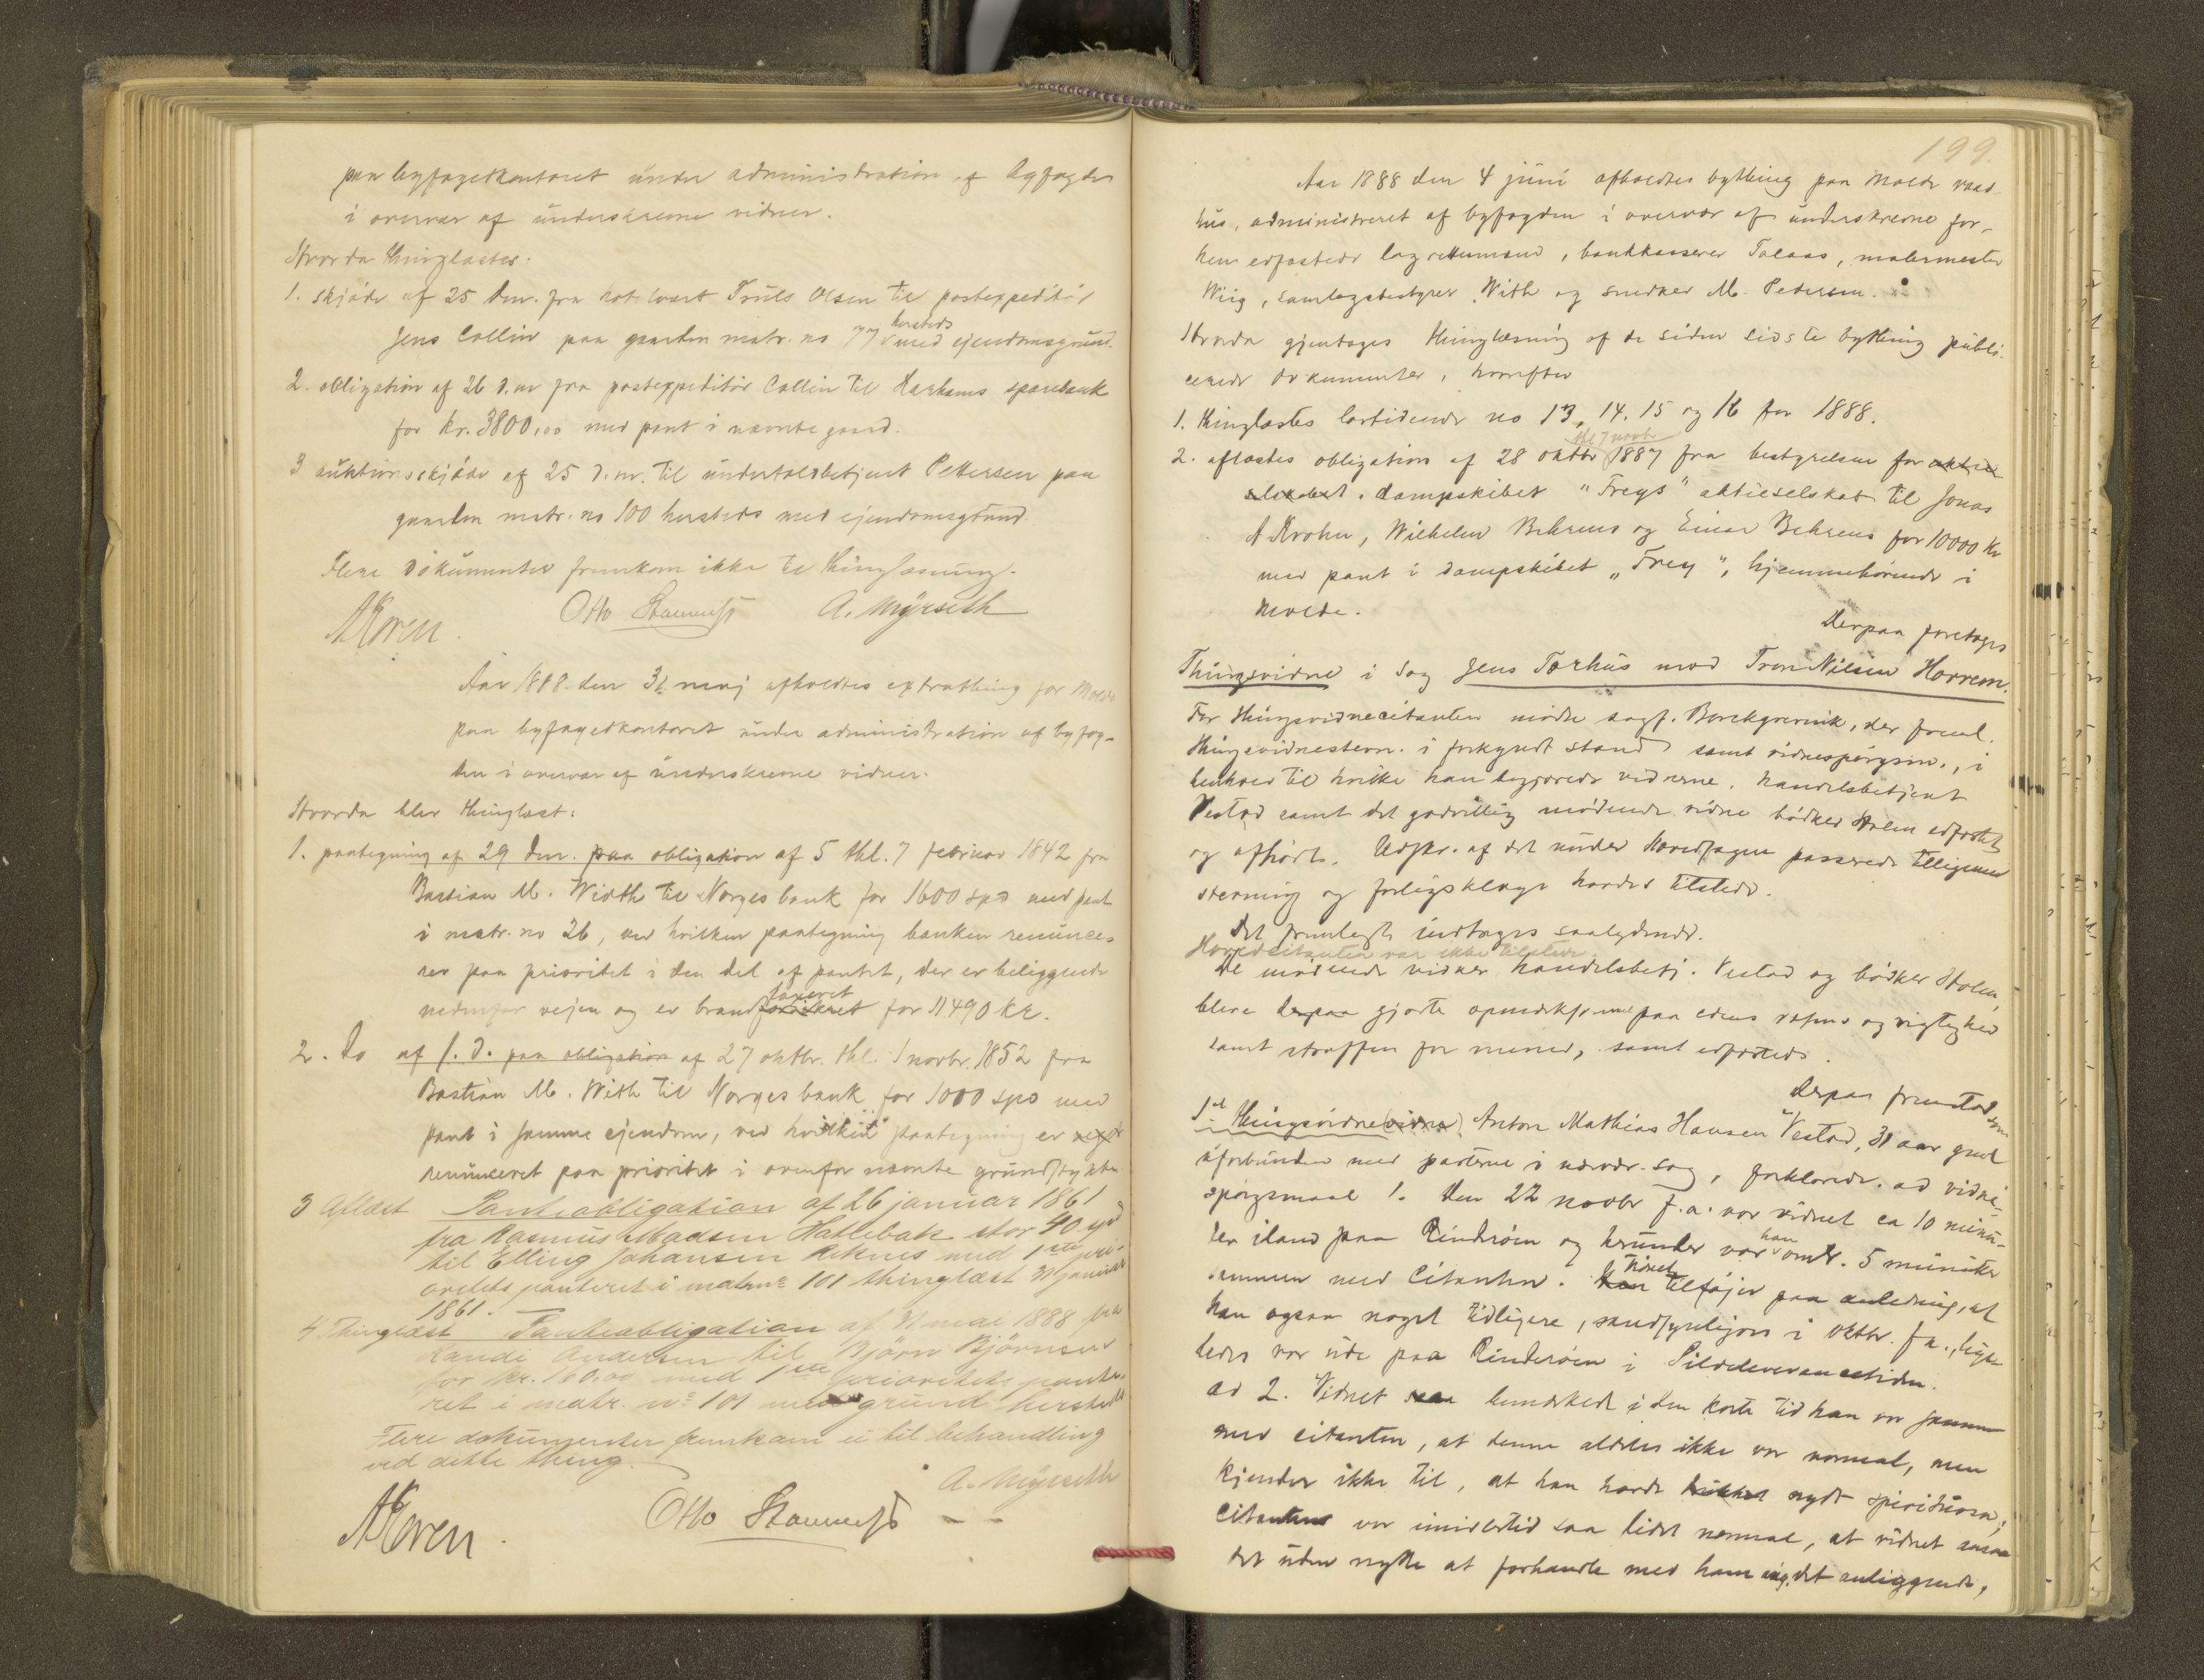 paa byfogedkontoret under administration af byfogden
i overvær af underskrevne vidner.
Hvorda thinglæstes:
1. skjøde af 25 dm. fra hotelvært Truls Olsen til postexpeditør
Jens Collin paa gaarden matr. no 77 hersteds med ejendomsgrund.
2. obligation af 26 d.m. fra postexpeditør Collin til Harhams sparebank
for kr. 3800,00 med pant i nævnte gaard.
3 auktionsskjøde af 25 d.m. til undertoldbetjent Pettersen paa
gaarden matr. no 100 hersteds med ejendomsgrund.
Flere dokumenter fremkom ikke til thinglæsning.
AKoren. Otto A. Myrseth
Aar 1888. den 31 maj afholdtes extrathing for Molde
paa byfogedkontoret under administration af byfog-
den i overvær af underskrevne vidner.
Hvorda blev thinglæst:
1. paategning af 29 dm. paa obligation af 5 thl. 7 februar 1842 fra
Bastian M. Width til Norges bank for 1600 spd med pant
i matr. no 26, ved hvilken paategning banken renunce-
rer paa prioritet i den del af pantet, der er beliggende
nedenfor vejen og er brandforsikret taxeret for 11490 Kr.
2. Do af s. d. paa obligation af 27 oktbr. thl. 1 novbr. 1852 fra
Bastian M. With til Norges bank for 1000 spd med
pant i samme ejendom, ved hvilken paategning er
renunceret paa prioritet i ovenfor nævnte grundstykke
3 Aflæst Panteobligation af 26 januar 1861
fra Rasmus Madsen Hatlebak stor 40 spd
til Elling Johansen Reknes med 1ste pri-
oritets panteret i matr no 101 thinglæst 31 januar
1861.
4 Thinglæst Panteobligation af 31 mai 1888 fra
Randi Andersen til Bjørn Bjørnsen
for kr. 160.00 med 1ste prioritets pante-
ret i matr. no 101 med grund hersteds
Flere dokumenter fremkom ei til behandling
ved dette thing.
A. Myrseth
AKoren. Otto
199.
Aar 1888 den 4 juni afholdtes bything paa Molde raad
hus, administreret af byfogden i overvær af underskrevne for-
hen edfæstede lagrettemænd, bankkasserer Talaas, malermester
Wiig, samlagsbestyrer With og snedker M. Pedersen.
Hvorda gjentoges thinglæsning af de siden sidste bything publi-
cerede dokumenter, hvorefter
1. thinglæstes lovtidende no 13, 14. 15 og 16 for 1888.
2. aflæstes obligation af 28 oktbr thl 7 novbr 1887 fra bestyrelsen for aktie
selskabet. dampskibet "Freys" aktieselskab til Jonas
A Krohn, Wilhelm Behrens og Einar Behrens for 10000 Kr
med pant i dampskibet "Frey", hjemmehørende i
Molde.
Derpaa foretoges
Thingsvidne i sag Jens Torhus mod Tron Nilsen Horrem.
For thingsvidnecitanten mødte sagf. Borchgrevink, der freml.
thingsvidnestevn. i forkyndt stand samt vidnespørgsm., i
henhold til hvilke han begjærede vidnerne, handelsbetjent
Vestad samt det godvillig mødende vidne bødker Stolen edfæstet
og afhørt. Udskr. af det under hovedsagen passerede tilligemed
stevning og forligsklage havdes tilstede.
Det fremlagte indtages saalydende.
Hovedcitanten var ikke tilstede.
De mødende vidner handelsbetj. Vestad og bødker Stolen,
bleve derpaa gjorte opmerksomme paa edens ansvar og vigtighed
samt straffen for mened, samt edfæstede.
Derpaa fremstod som
1ste Thingsvidne (vidne) Anton Mathias Hansen Vestad, 31 aar gml
uforbunden med parterne i nærvær. sag, forklarede. ad vidne-
spørgsmaal 1. Den 22 novbr f. a. var vidnet ca 10 minu-
ter iland paa Rinderøen og herunder var han omtr. 5 minuter
sammen med citanten. Han Vidnet tilføjer paa anledning, at
han ogsaa noget tidligere, sandsynligvis i oktbr. f. a., lige-
ledes var ude paa Rinderøen i Sildeleverancetiden.
ad 2. Vidnet bemærkede i den korte tid han var sammen
med citanten, at denne aldeles ikke var normal, men
kjender ikke til, at han havde nydt spirituosa;
Citanten var imidlertid saa lidet normal, at vidnet ansaa
det uden nytte at forhandle med ham ang. det anliggende,